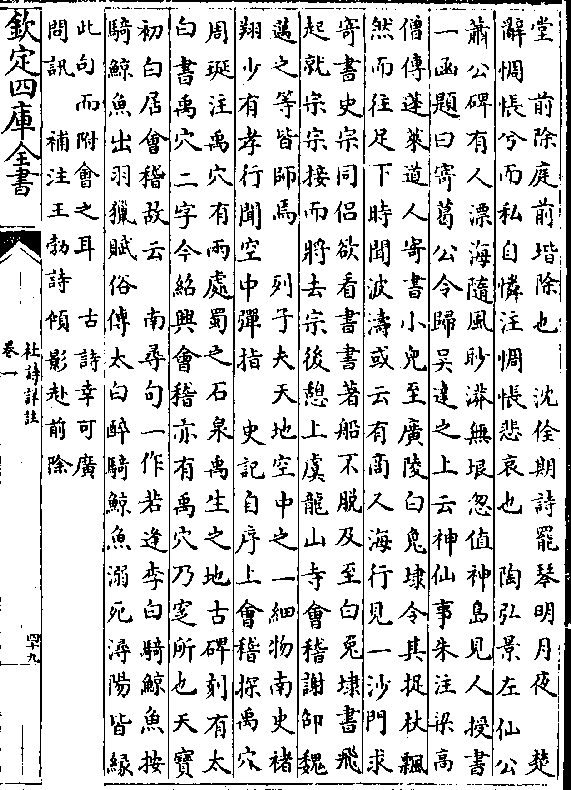 堂　前除庭前堦除也　沈佺期詩罷琴明月夜　楚
辭惆悵兮而私自憐注惆悵悲哀也　陶弘景左仙公
葛公碑有人漂海隨風眇漭無垠忽值神島見人授書
一函題曰寄葛公令歸吳達之上云神仙事朱注梁高
僧傳蓬萊道人寄書小兒至廣陵白兔埭令其捉杖飄
然而往足下時聞波濤或云有商人海行見一沙門求
寄書史宗同侶欲看書書著船不脫及至白兔埭書飛
起就宗宗接而將去宗後憩上虞龍山寺會稽謝卲魏
邁之等皆師焉　列子夫天地空中之一細物南史褚
翔少有孝行聞空中彈指　史記自序上會稽探禹穴
周珽注禹穴有兩處蜀之石泉禹生之地古碑刻有太
白書禹穴二字今紹興會稽亦有禹穴乃窆所也天寶
初白居會稽故云　南尋句一作若逢李白騎鯨魚按
騎鯨魚出羽獵賦俗傳太白醉騎鯨魚溺死潯陽皆緣
此句而附會之耳　古詩幸可廣
問訊　補注王勃詩傾影赴前除
欽定四庫全書
杜詩詳註
卷一
四十九